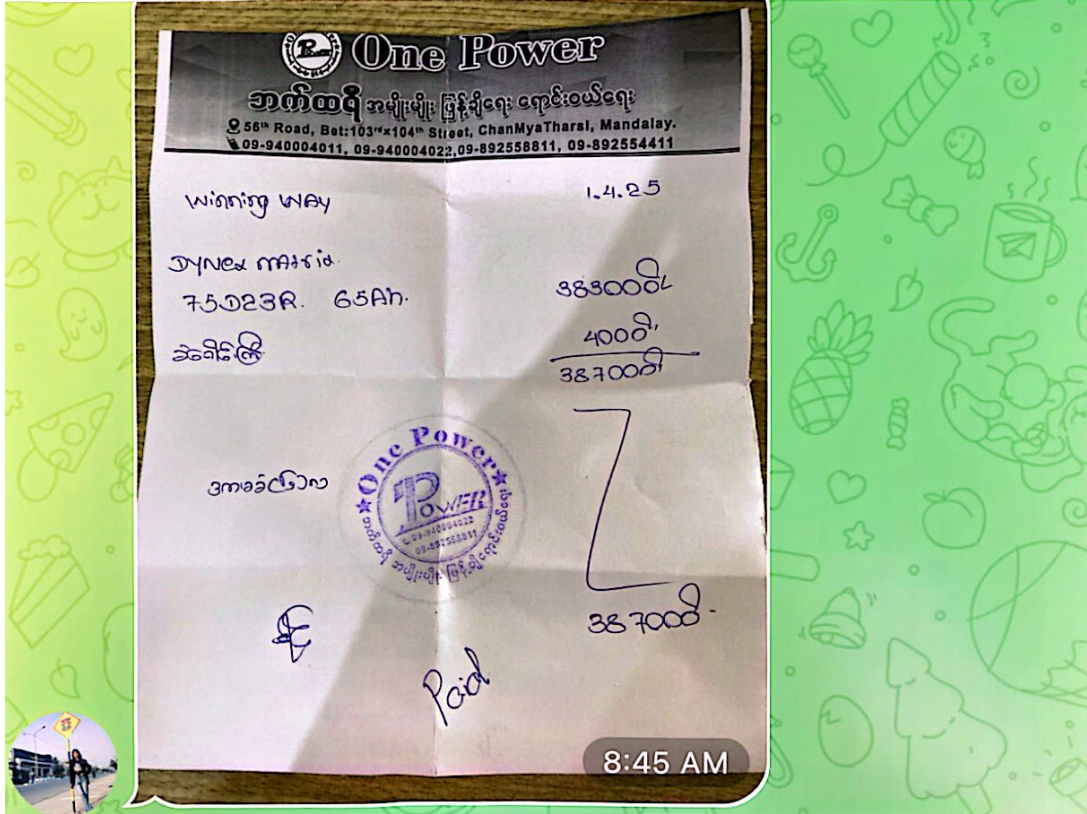 One Power
ဘက်ထရီ အမျိုးမျိုး ဖြန့်ချိရေး ရောင်းဝယ်ရေး
56th Road, Bet:103rd×104th Street, ChanMyaTharsi, Mandalay.
09-940004011, 09-940004022,09-892558811, 09-892554411
Winning WAY 1.4.25
75D23R. 65Ah. 383000
4000
387000
One Power
POWER
09-940004022
09-892558811
ဘက်ထရီ အမျိုးမျိုး ဖြန့်ချိရေး ရောင်းဝယ်ရေး
387000
Paid
8:45 AM